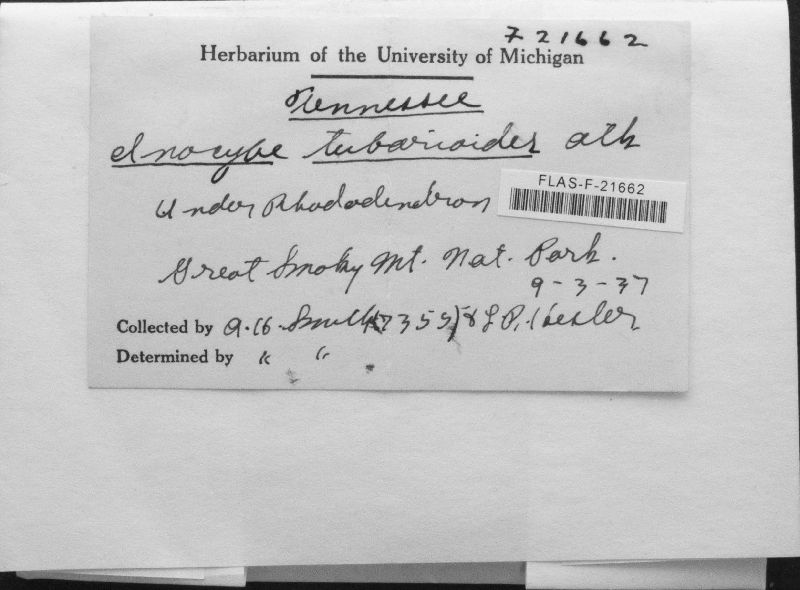 F 21662
Herbarium of the University of Michigan
Tennessee
Inocybe tubarioides Atk
Under Rhododendron
FLAS-F-21662
Great Smoky Mt. Nat. Park.
9-3-37
Collected by A.H. Smith (7355) & L.R. Hesler
Determined by " "